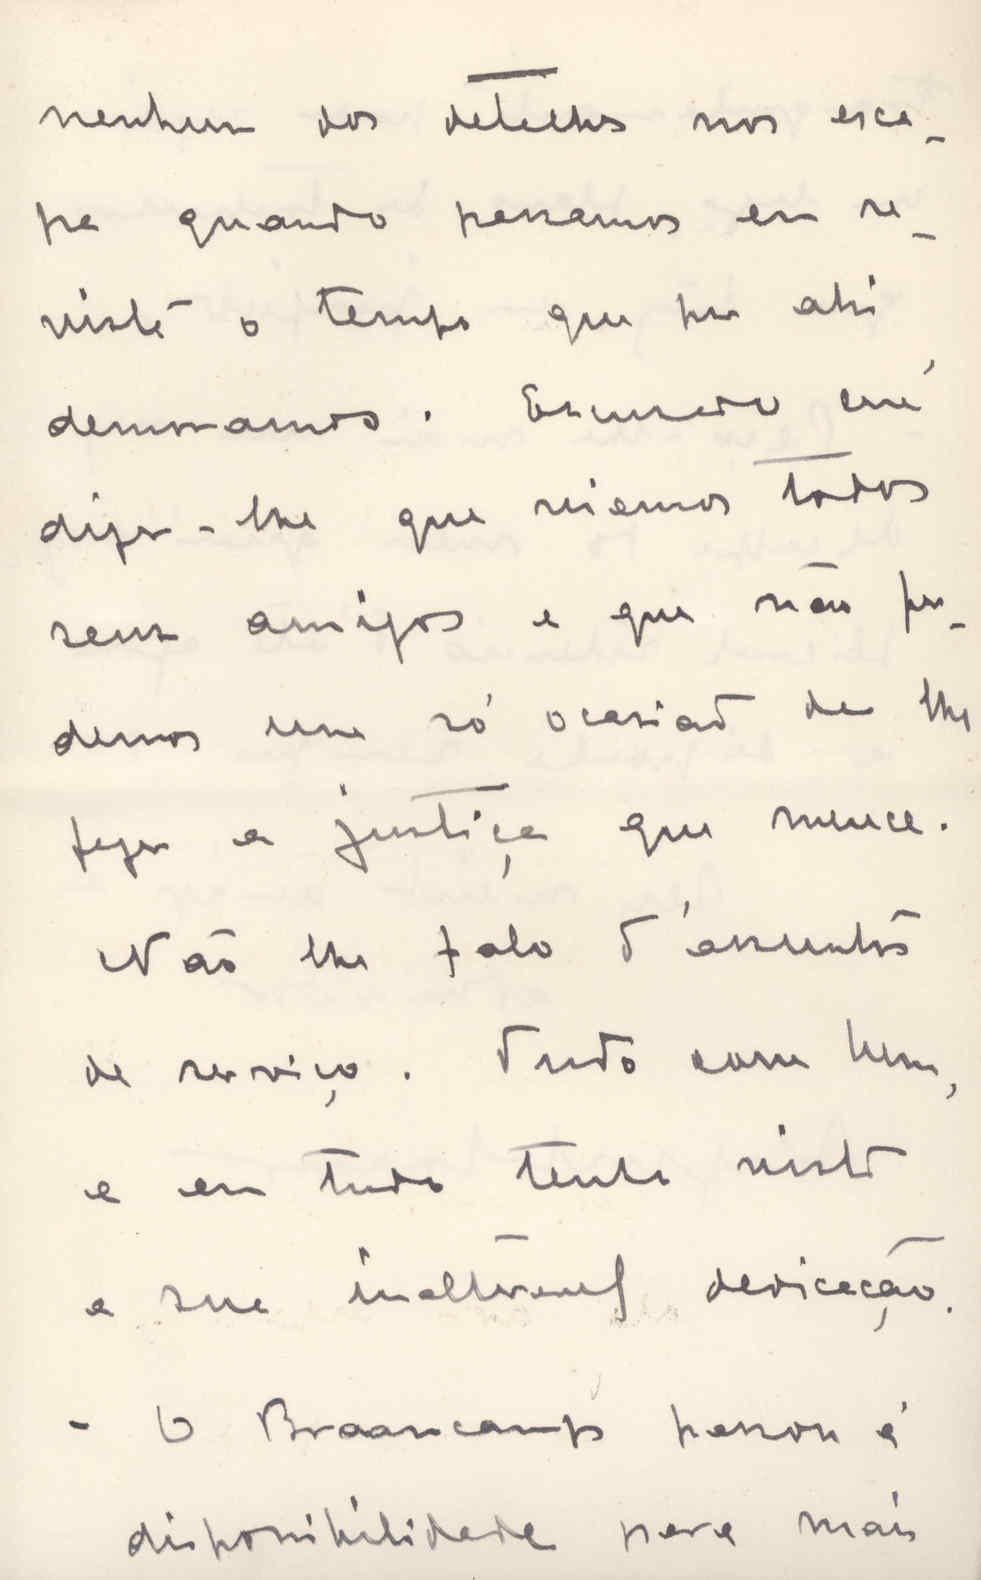 nenhum dos detalhes nos esca-
pa quando passamos em re-
vista o tempo que por ahi
demoramos. Escusado será
dizer-lhe que viemos todos
seus amigos e que não per-
demos uma só ocasião de lhe
fazer a justiça que merece.
Não lhe falo d'assuntos
de serviço. Tudo corre bem,
e em tudo tenho visto
a sua inalteravel dedicação.
- O Braancamp passou á
disponibilidade para mais